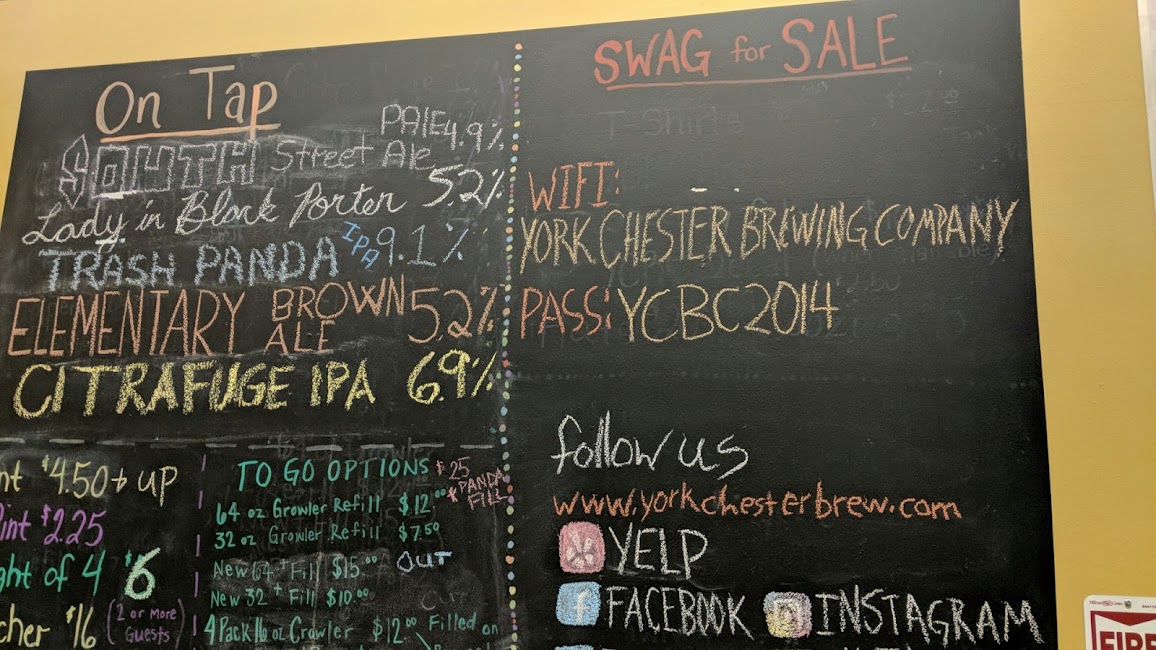 On Tap
SOUTH Street PALE Ale 4.9%
Lady in Black Porter 5.2%
TRASH PANDA IPA 9.1%
ELEMENTARY BROWN ALE 5.2%
CITRAFUGE IPA 6.9%
nt $4.50 + up
int $2.25
ght of 4 $6
cher $16 (2 or more Guests)
TO GO OPTIONS
$25
*PANDA FILL
64 oz Growler Refill $12.00
32 oz Growler Refill $7.50
New 64 + Fill $15.00 OUT
New 32 + Fill $10.00
4 Pack 16 oz Crowler $12.00 Filled on
SWAG for SALE
T-Shirts
WIFI:
YORK CHESTER BREWING COMPANY
PASS: YCBC2014
follow us
www.yorkchesterbrew.com
YELP
f FACEBOOK INSTAGRAM
FIRE